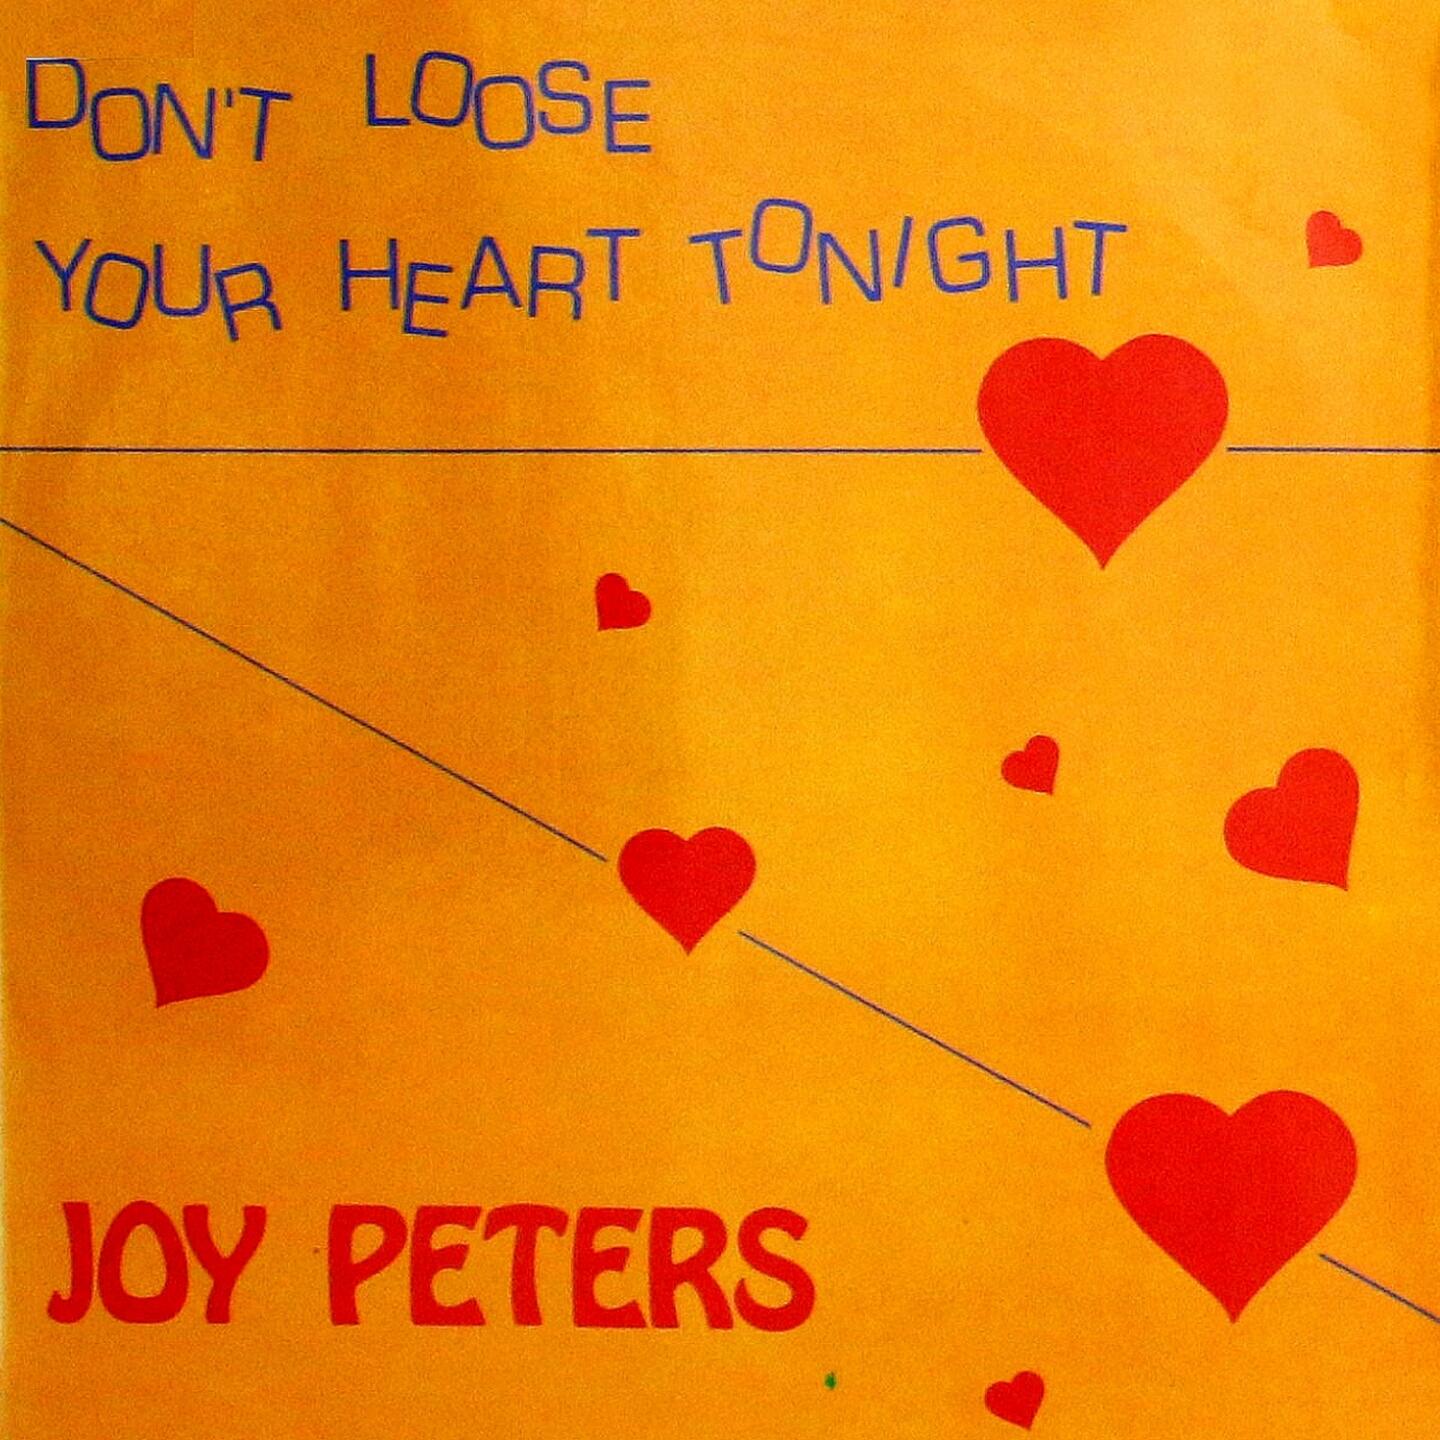 DON'T LOOSE
YOUR HEART TONIGHT
JOY PETERS